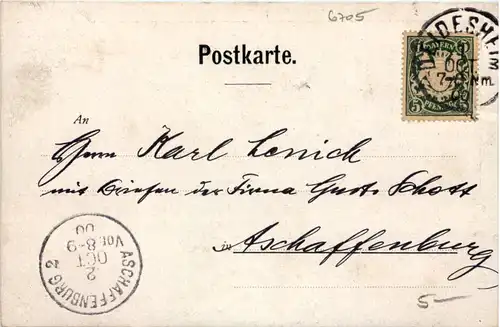 6705
Postkarte.
DEIDESHEIM
OCT
7-8 Nm.
BAYERN
5 PFENNIG 5
An
Herrn Karl Lenich
mit Briefen der Firma Gust. Schott
in Aschaffenburg
ASCHAFFENBURG 2
2
OCT
Vor. 8-9
00
5-